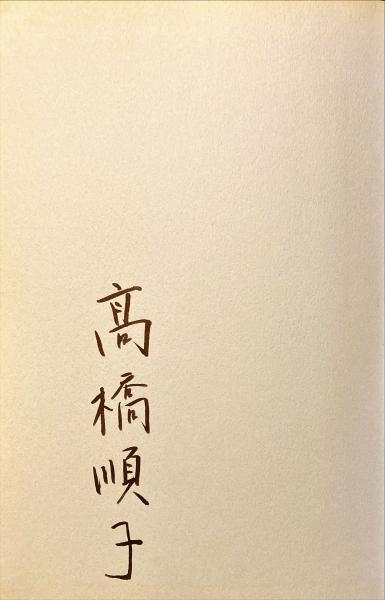 髙橋順子